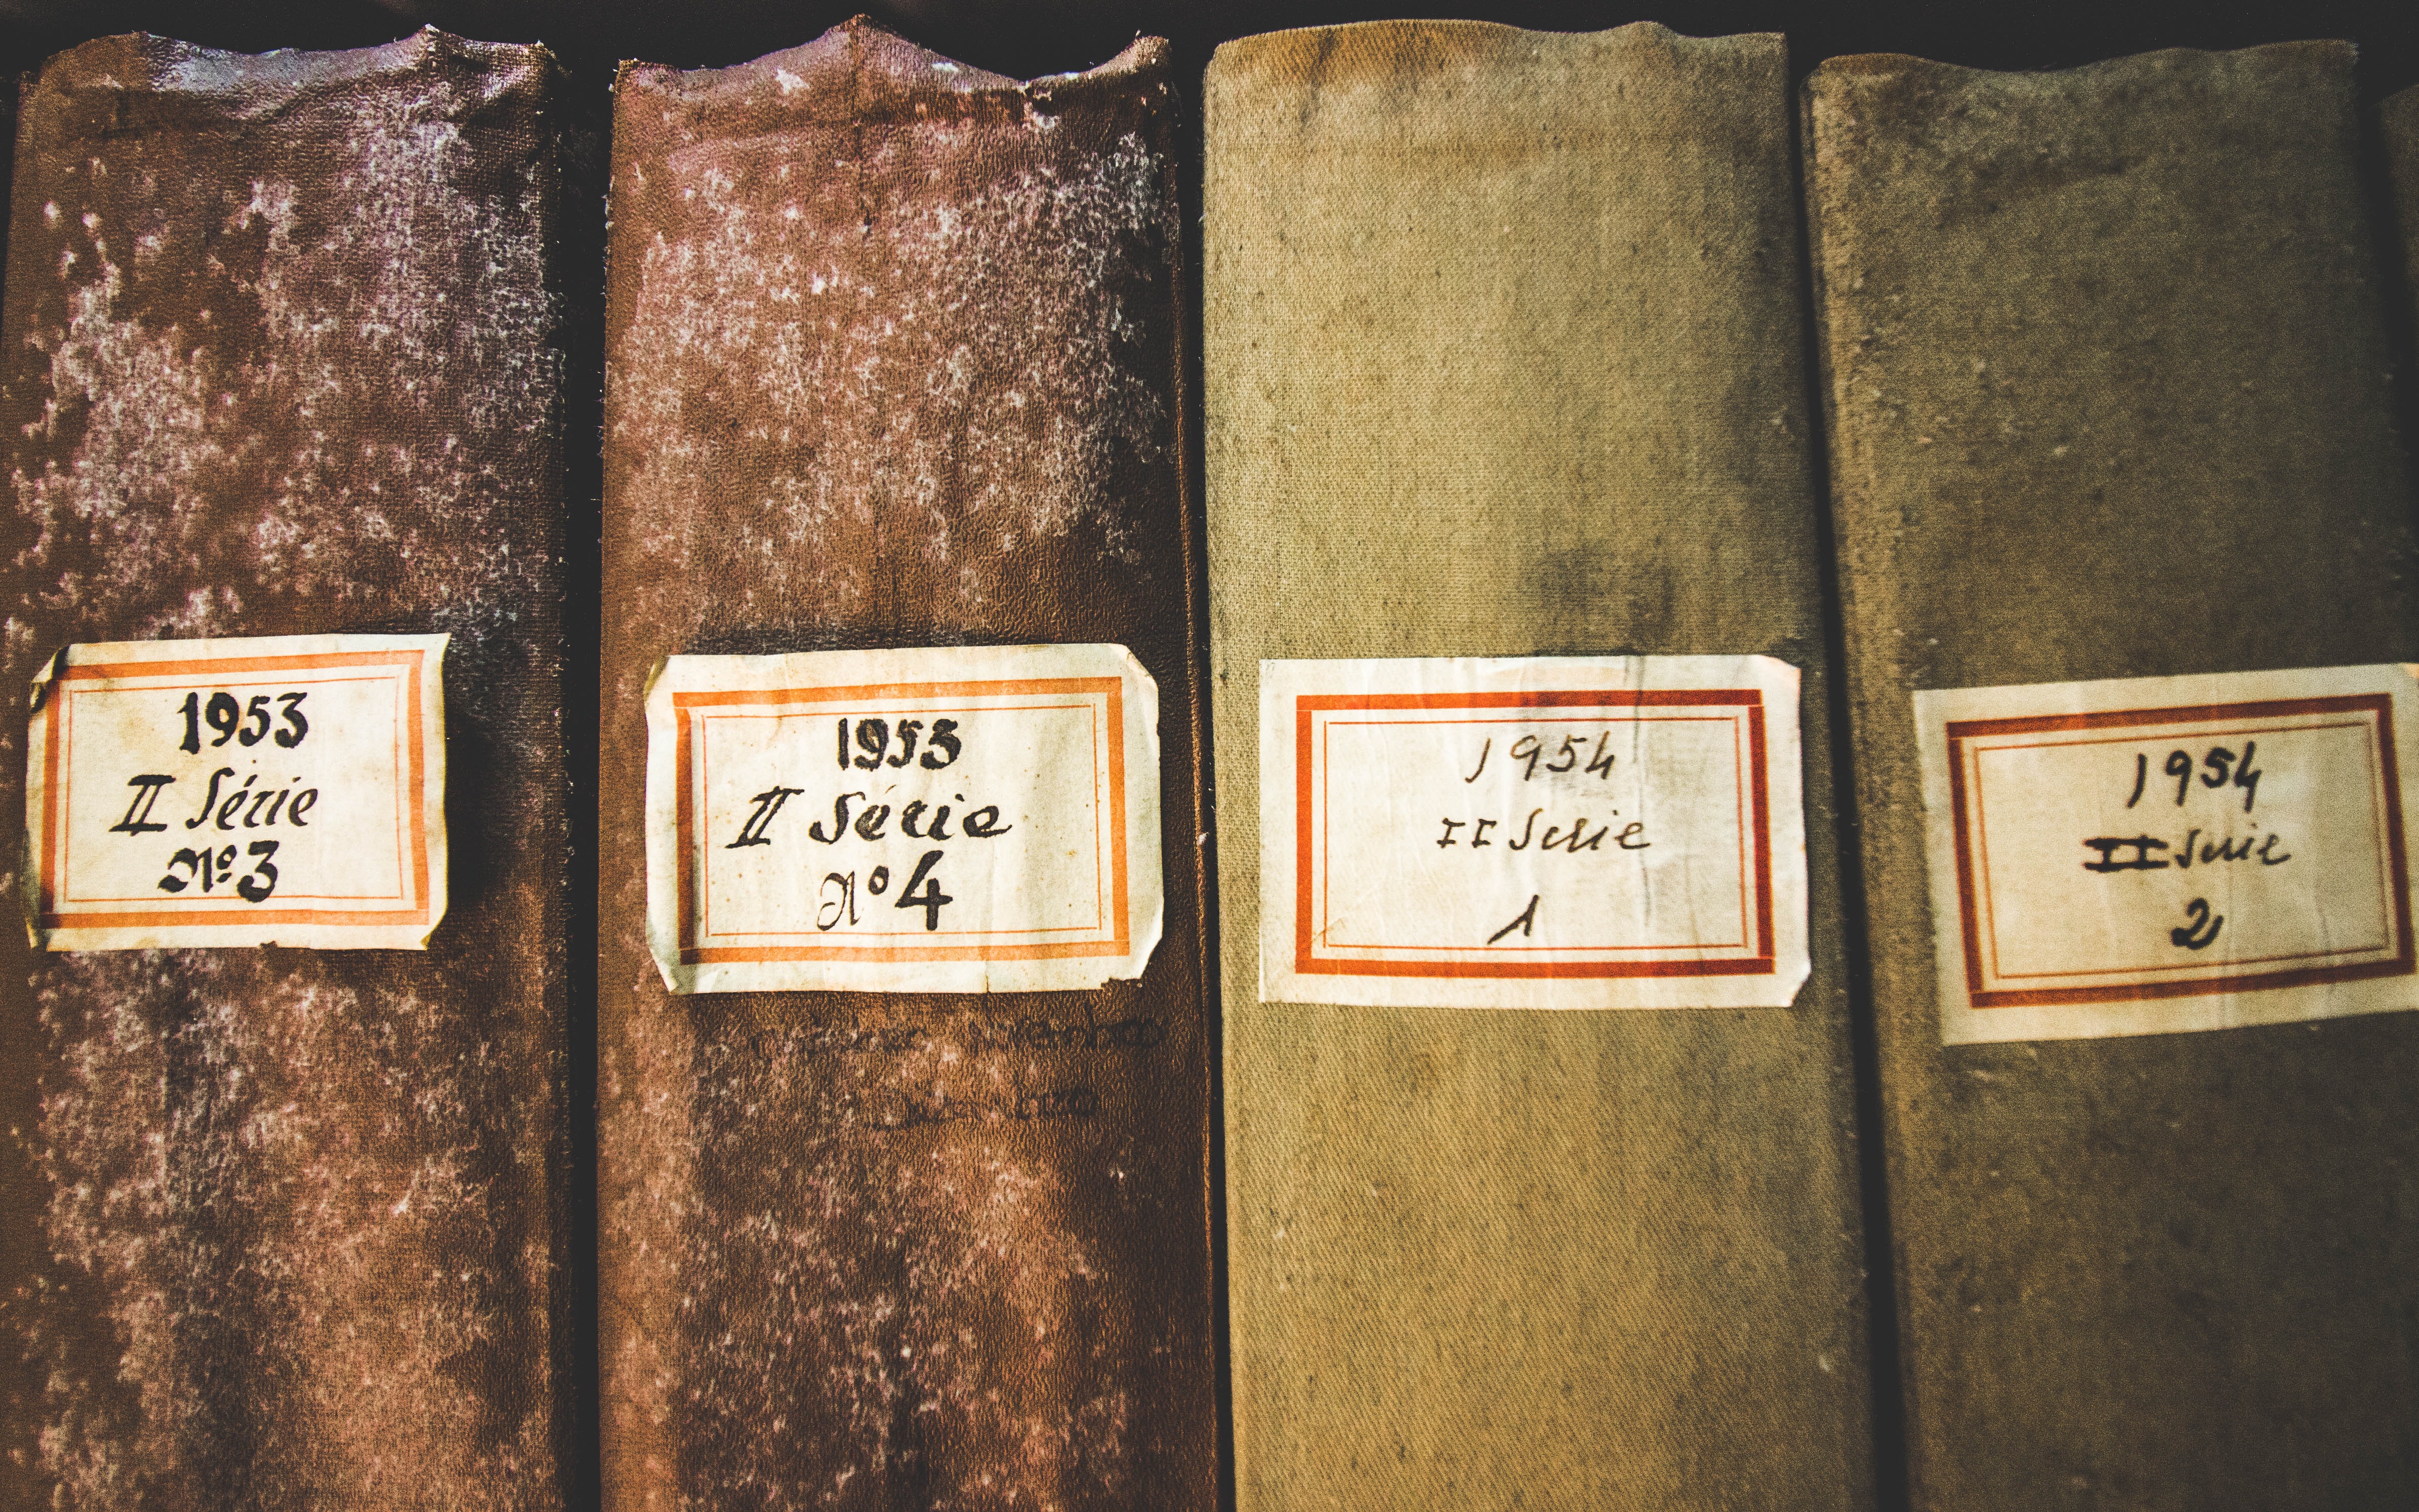 1953
II Série
Nº 3
1953
II Série
Nº 4
1954
II Serie
1
1954
II Serie
2